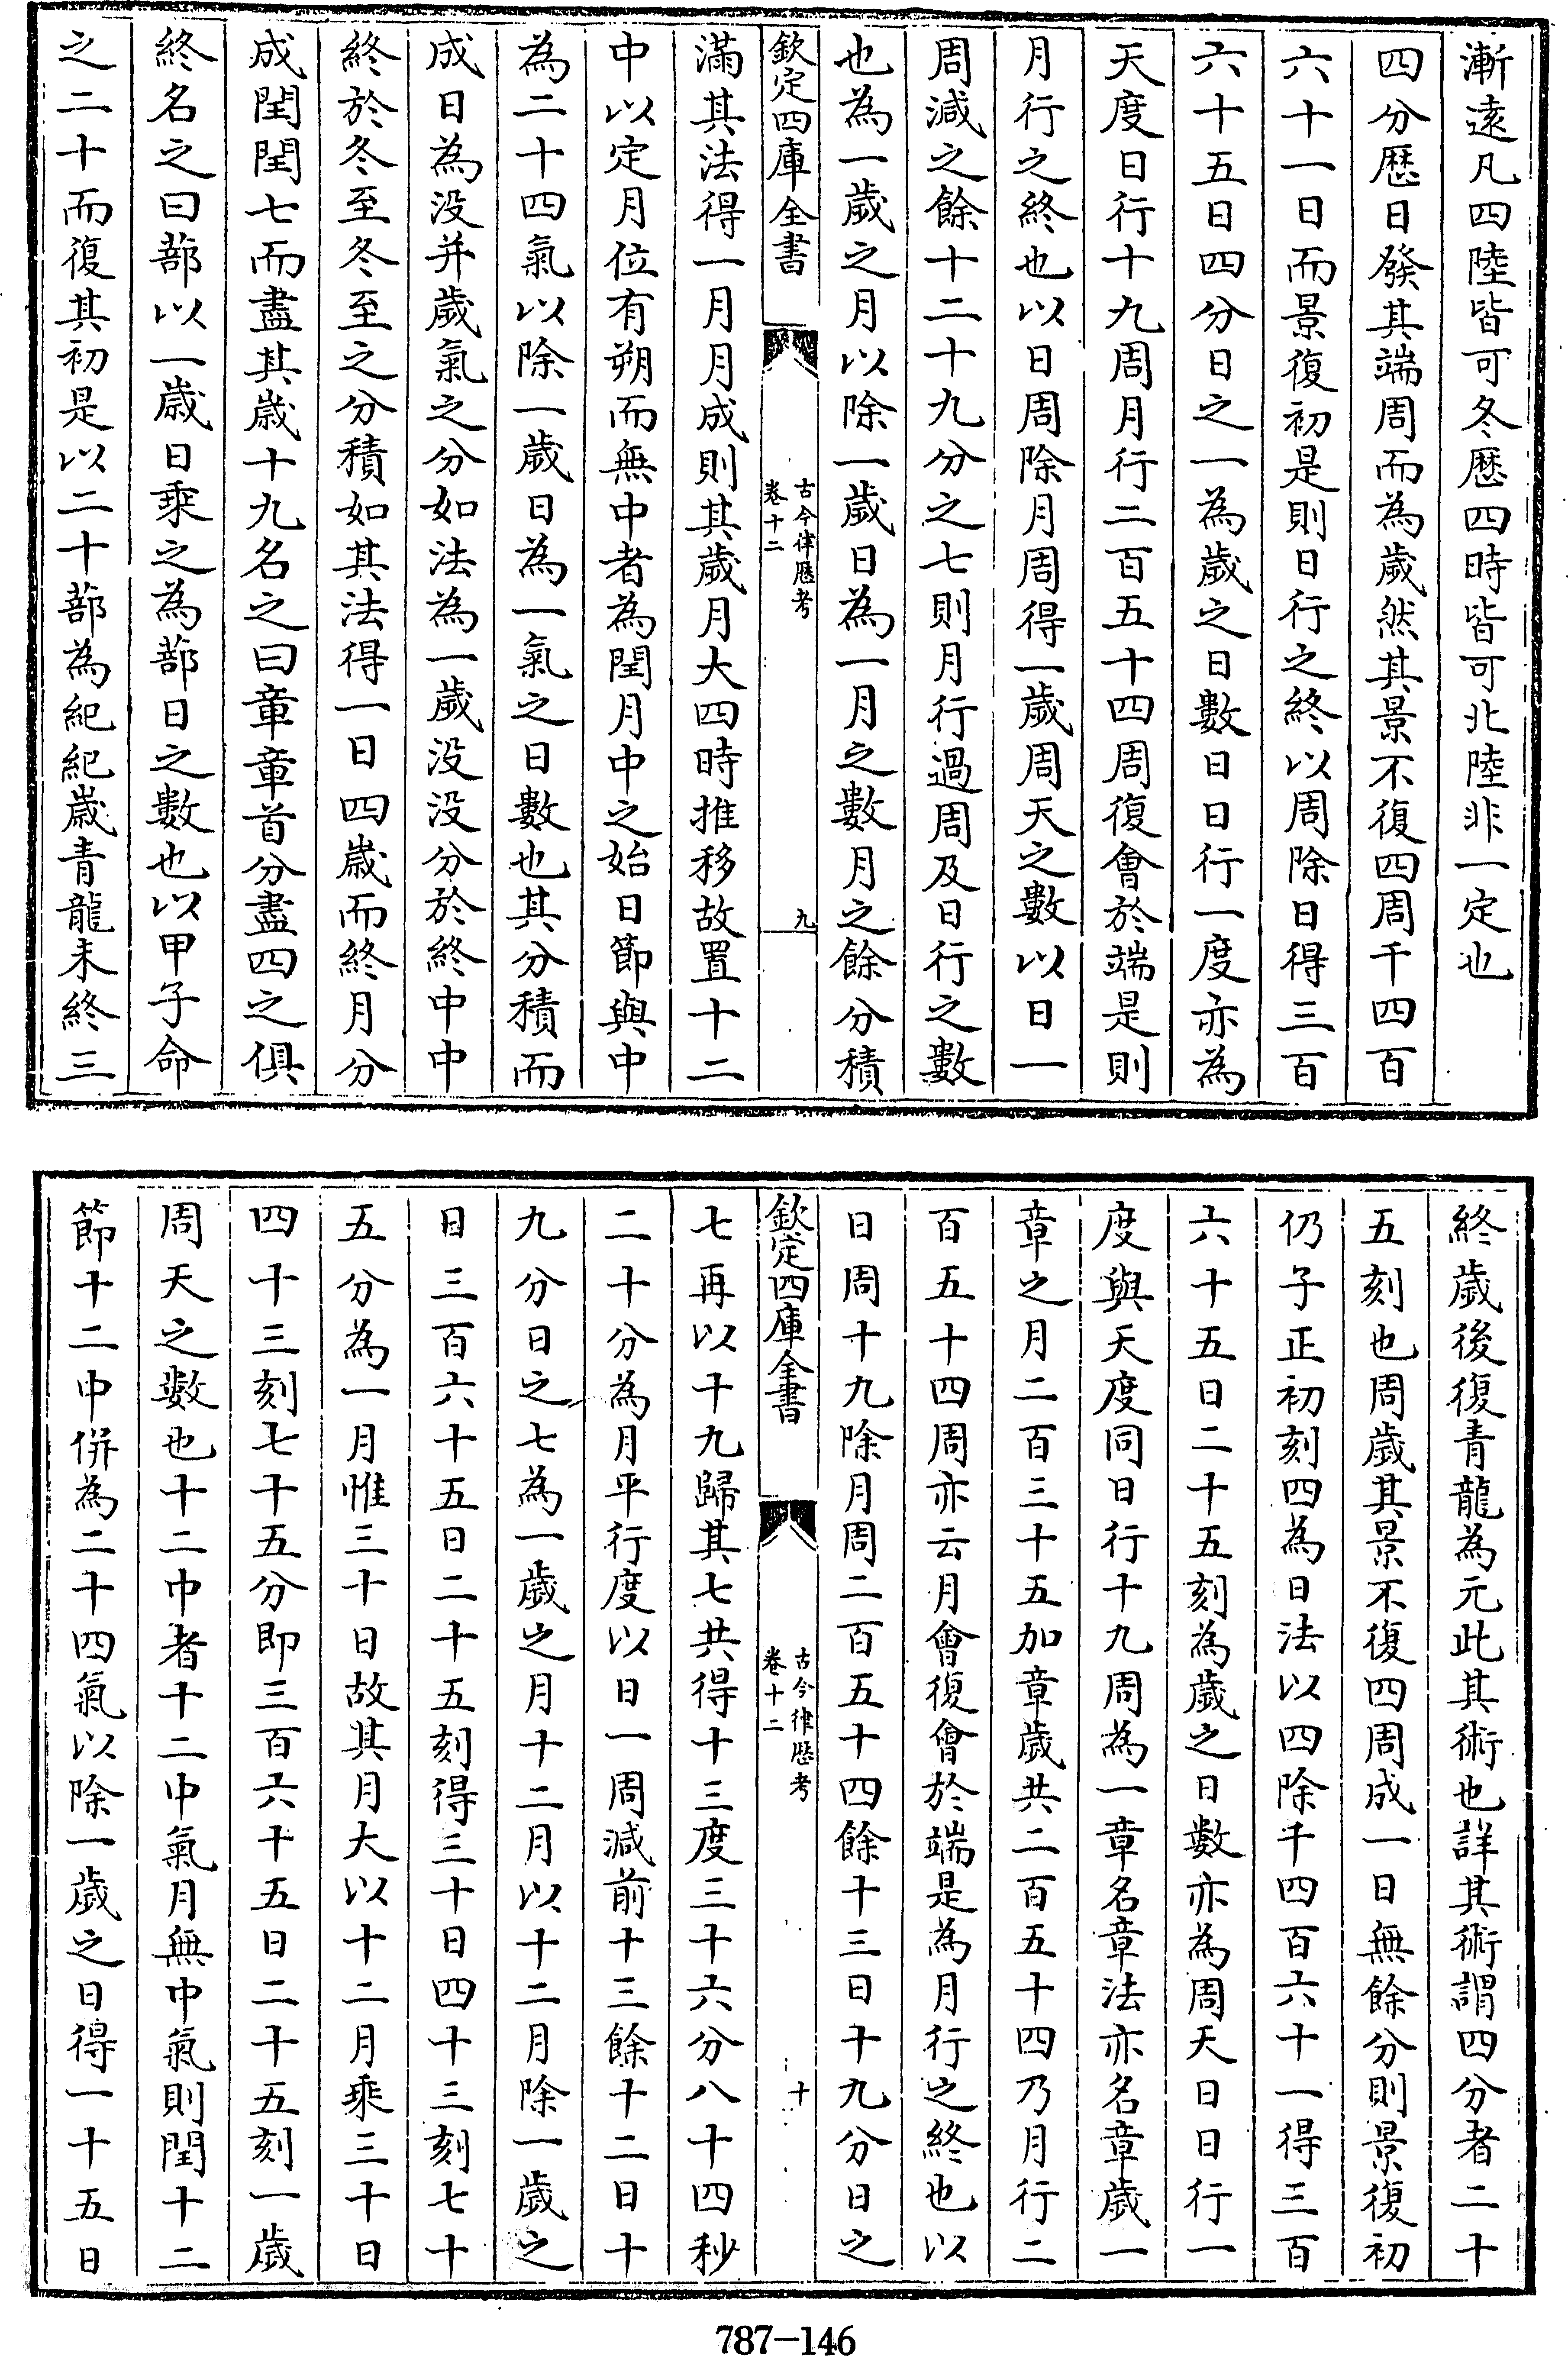 漸逺凡四陸皆可冬歴四時皆可北陸非一定也
四分歴日發其端周而為歲然其景不復四周千四百
六十一日而景復初是則日行之終以周除日得三百
六十五日四分日之一為歲之日數日日行一度亦為
天度日行十九周月行二百五十四周復會於端是則
月行之終也以日周除月周得一歲周天之數以日一
周減之餘十二十九分之七則月行過周及日行之數
也為一歲之月以除一歲日為一月之數月之餘分積
欽定四庫全書
古今律歴考
卷十二
九
滿其法得一月月成則其歲月大四時推移故置十二
中以定月位有朔而無中者為閏月中之始日節與中
為二十四氣以除一歲日為一氣之日數也其分積而
成日為没并歲氣之分如法為一歲没没分於終中中
終於冬至冬至之分積如其法得一日四歲而終月分
成閏閏七而盡其歲十九名之曰章章首分盡四之俱
終名之曰蔀以一歲日乘之為蔀日之數也以甲子命
之二十而復其初是以二十蔀為紀紀歲青龍未終三
終歲後復青龍為元此其術也詳其術謂四分者二十
五刻也周歲其景不復四周成一日無餘分則景復初
仍子正初刻四為日法以四除千四百六十一得三百
六十五日二十五刻為歲之日數亦為周天日日行一
度與天度同日行十九周為一章名章法亦名章歲一
章之月二百三十五加章歲共二百五十四乃月行二
百五十四周亦云月會復會於端是為月行之終也以
日周十九除月周二百五十四餘十三日十九分日之
欽定四庫全書
古今律歴考
卷十二
十
七再以十九歸其七共得十三度三十六分八十四秒
二十分為月平行度以日一周減前十三餘十二日十
九分日之七為一歲之月十二月以十二月除一歲之
日三百六十五日二十五刻得三十日四十三刻七十
五分為一月惟三十日故其月大以十二月乘三十日
四十三刻七十五分即三百六十五日二十五刻一歲
周天之數也十二中者十二中氣月無中氣則閏十二
節十二中併為二十四氣以除一歲之日得一十五日
787-146